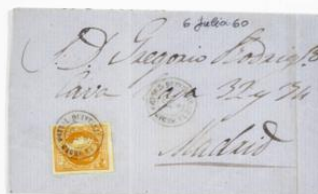 6 julio 60
D. Gregorio Rodrig^z
Cava Baja 32 y 34
Madrid